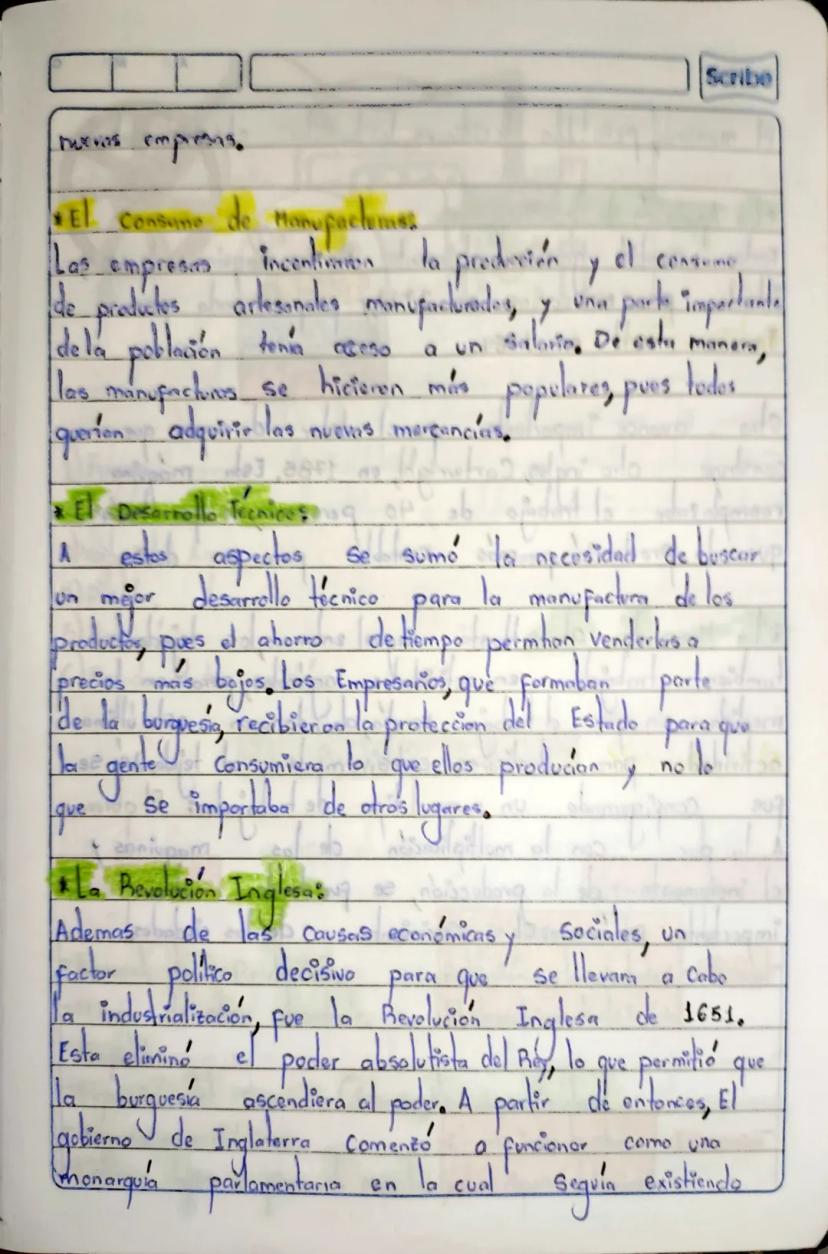 Scribe
nuevas empresas.
*El Consumo de Manufacturas:
Las empresas incentivaron la producción y el consumo
de productos artesonales manufacturados, y una parte importante
de la población tenía acceso a un salario. De esta manera,
las manufacturas se hicieron más populares, pues todos
querían adquirir las nuevas mercancías.
* El Desarrollo Técnico:
A estos aspectos se sumó la necesidad de buscar
un mejor desarrollo técnico para la manufactura de los
productos, pues el ahorro de tiempo permitian venderlos a
precios más bajos. Los Empresarios, que formaban parte
de la burguesía, recibieron la proteccion del Estado para que
la gente consumiera lo que ellos producían y no lo
que se importaba de otros lugares.
*La Revolución Inglesa:
Ademas de las causas económicas y Sociales, un
factor político decisivo para que se llevara a Cabo
la industrialización, fue la Revolución Inglesa de 1651.
Esta eliminó el poder absolutista del Rey, lo que permitió que
la burguesía ascendiera al poder. A partir de entonces, El
gobierno de Inglaterra Comenzó a funcionar como una
monarquía parlamentaria en la cual seguía existiendo